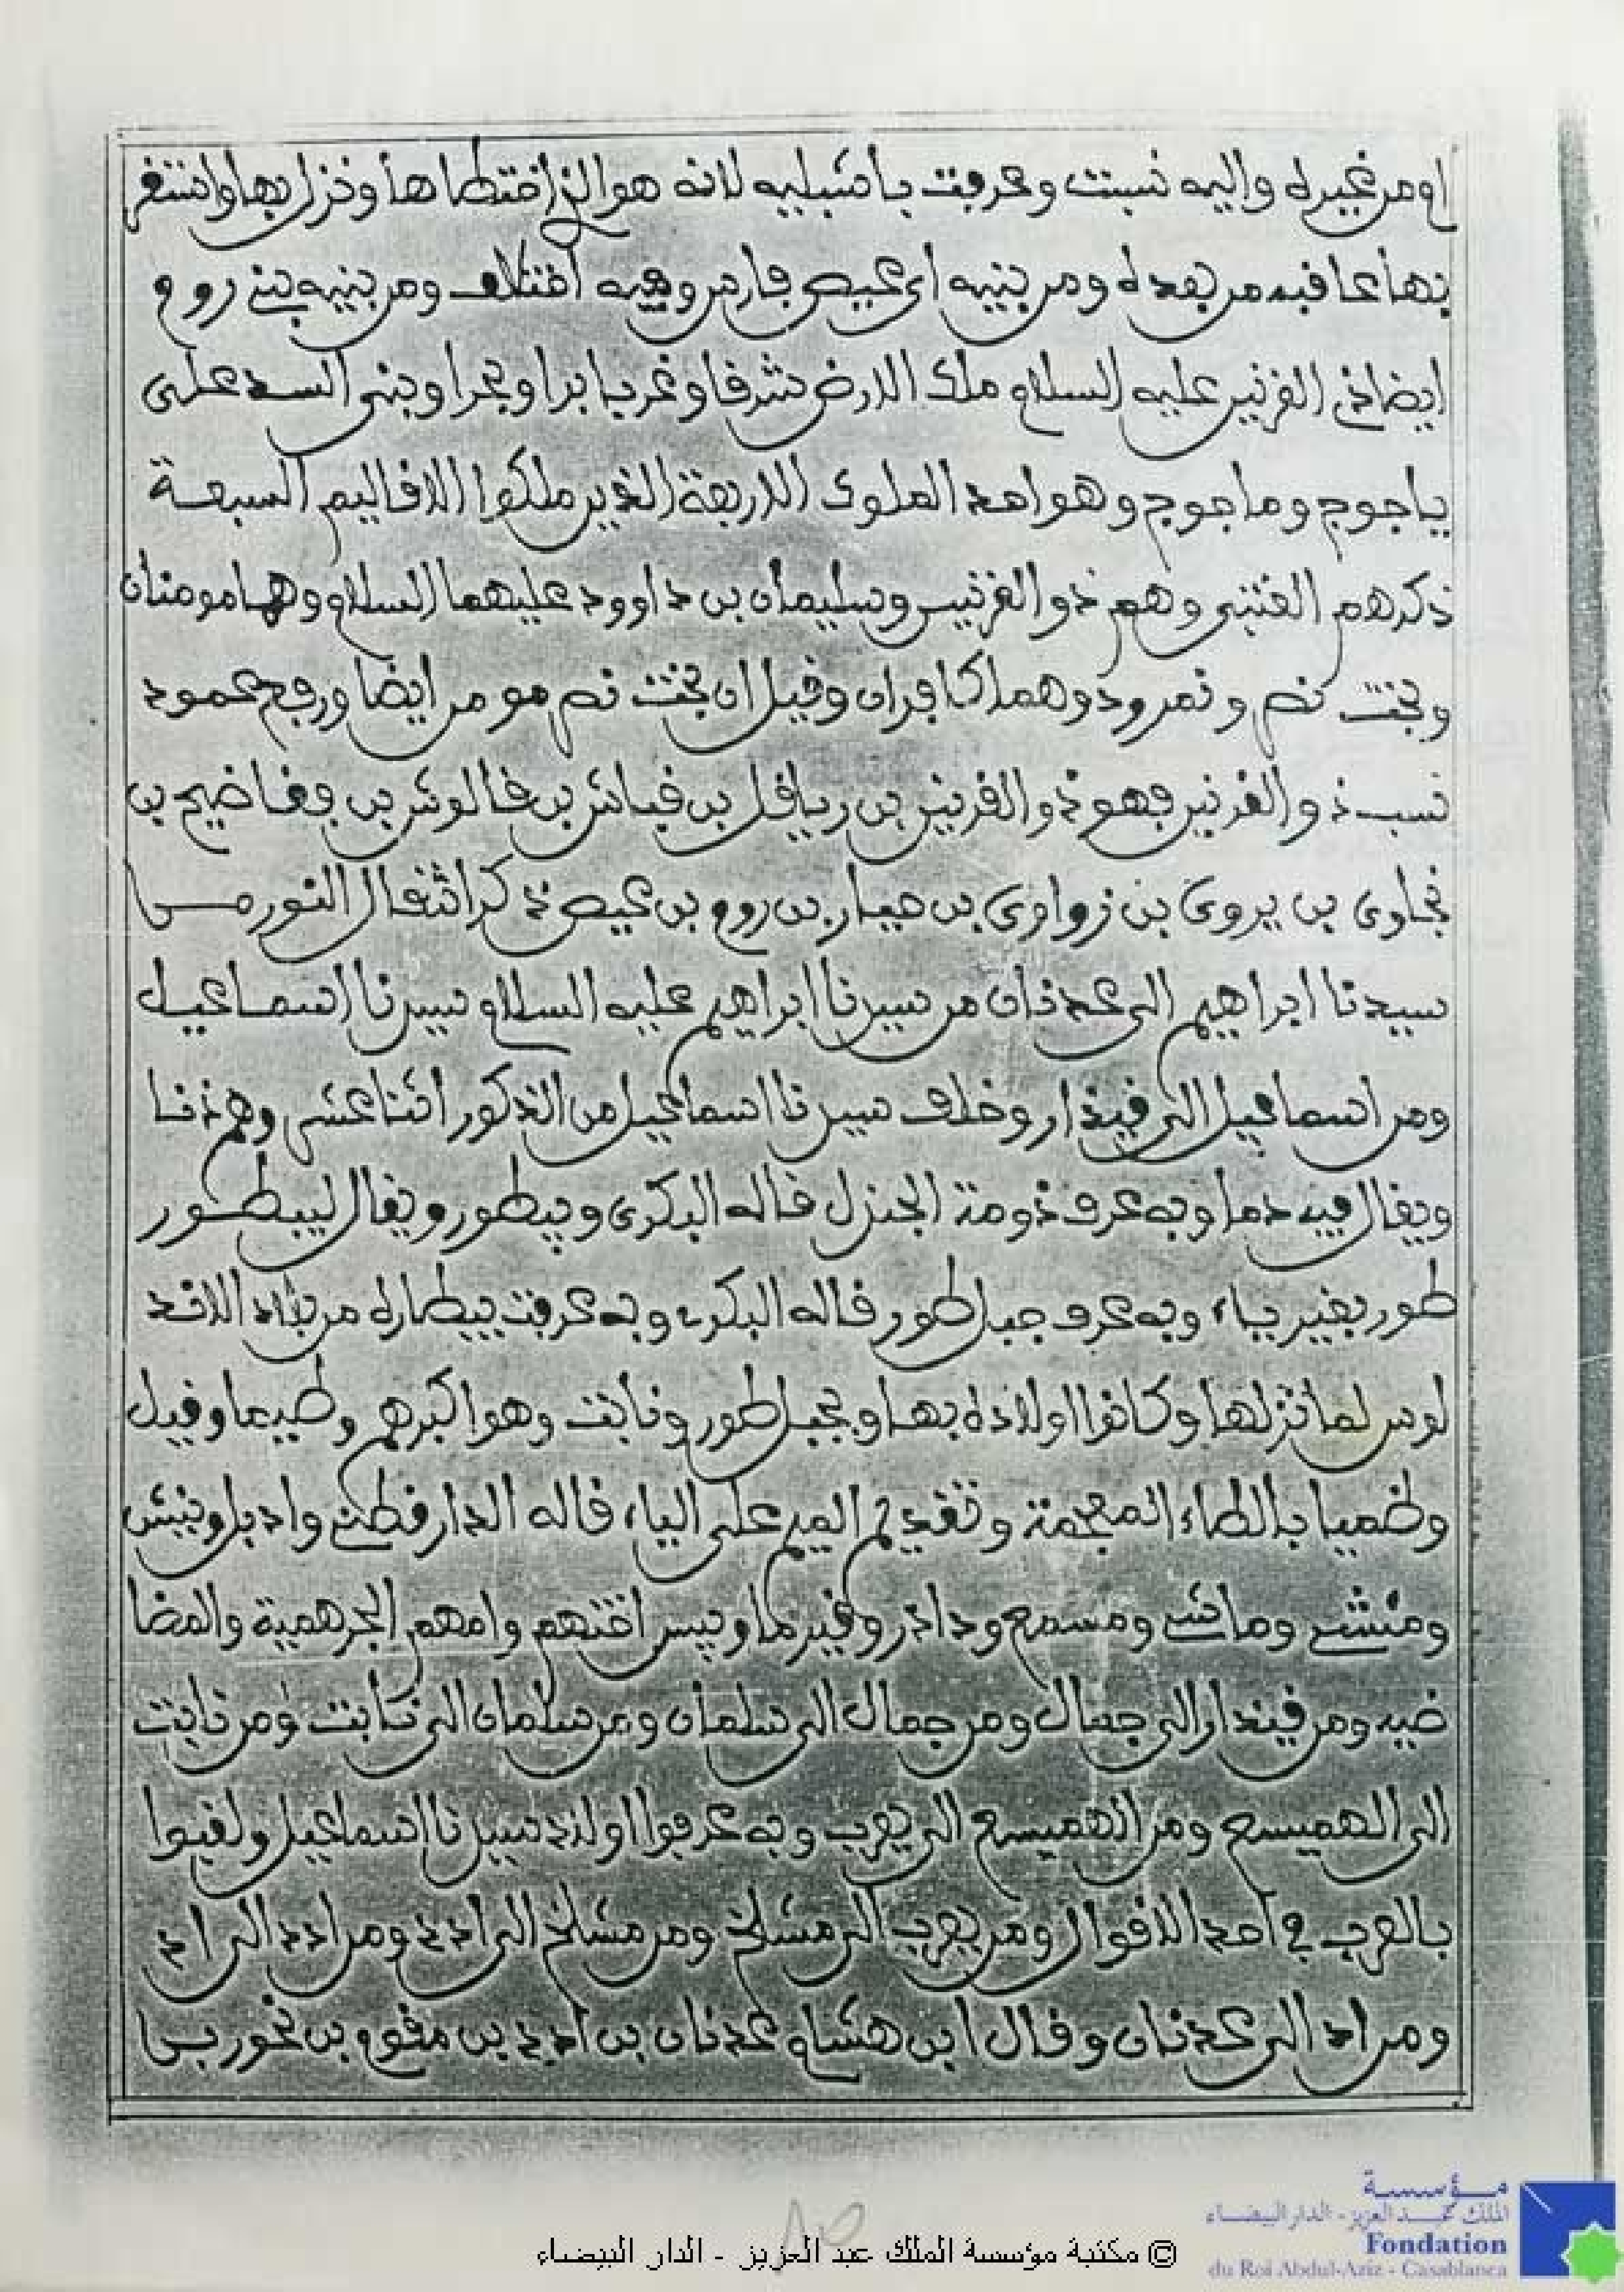 او من غيره واليه نسبت وعرفت بأشبليه لانه هو الذي اختطاها ونزل بها واستقر
بها عاقبه من بعده ومن بنيه اي عيص فارس وفيه اختلاف ومن بنيه بني روم
ايضا ذي القرنين عليه السلام ملك الارض شرقا وغربا برا وبحرا وبنى السد على
ياجوج وماجوج وهو احد الملوك الاربعة الذين ملكوا الاقاليم السبعة
ذكرهم القتبي وهم ذو القرنين وسليمان بن داوود عليهما السلام وهما مومنان
وبخت نصر ونمرود وهما كافران وقيل ان بخت نصر مومن ايضا ورفع عمود
نسب ذو القرنين فهو ذو القرنين بن رياقل بن قباش بن قالوش بن بن
بن يروى بن بن بن روم بن عيص ذكر انتقال النور من
سيدنا ابراهيم الى عدنان من سيدنا ابراهيم عليه السلام لسيدنا اسماعيل
ومن اسماعيل الى قيذار وخلف سيدنا اسماعيل من الذكور اثنا عشر وهم
ويقال فيه دما وبه عرف ذومة الجندل قاله البكرى ويطور ويقال ليطور
طور بغير ياء وبه عرف جبل طور قاله البكرى وبه عرفت بيطاره من بلاد الاند
لوس لما نزلها وكانوا اولاده بها وبجبل طور ونابت وهو اكبرهم وطيما وقيل
وظميا بالظاء المعجمة وتقديم الميم على الياء قاله الدارقطني وادبل ونبش
ومنشى وماشى ومسمع وداذر وقيدما اختهم وامهم الجرهمية والمضا
ضيه ومن قيذار الى جمال ومن جمال الى سلمان ومن سلمان الى نابت ومن نابت
الى الهميسع ومن الهميسع الى يعرب وبه عرفوا اولاد سيدنا اسماعيل ولقبوا
بالعرب في احد الاقوال ومن يعرب الى مشلخ ومن مشلخ الى ادد ومن ادد الى اد
ومن اد الى عدنان وقال ابن هشام عدنان بن ادد بن مقوم بن نحور بن
© مكتبة مؤسسة الملك عبد العزيز - الدار البيضاء
مؤسسة
الملك عبد العزيز - الدار البيضاء
Fondation
du Roi Abdul-Aziz - Casablanca